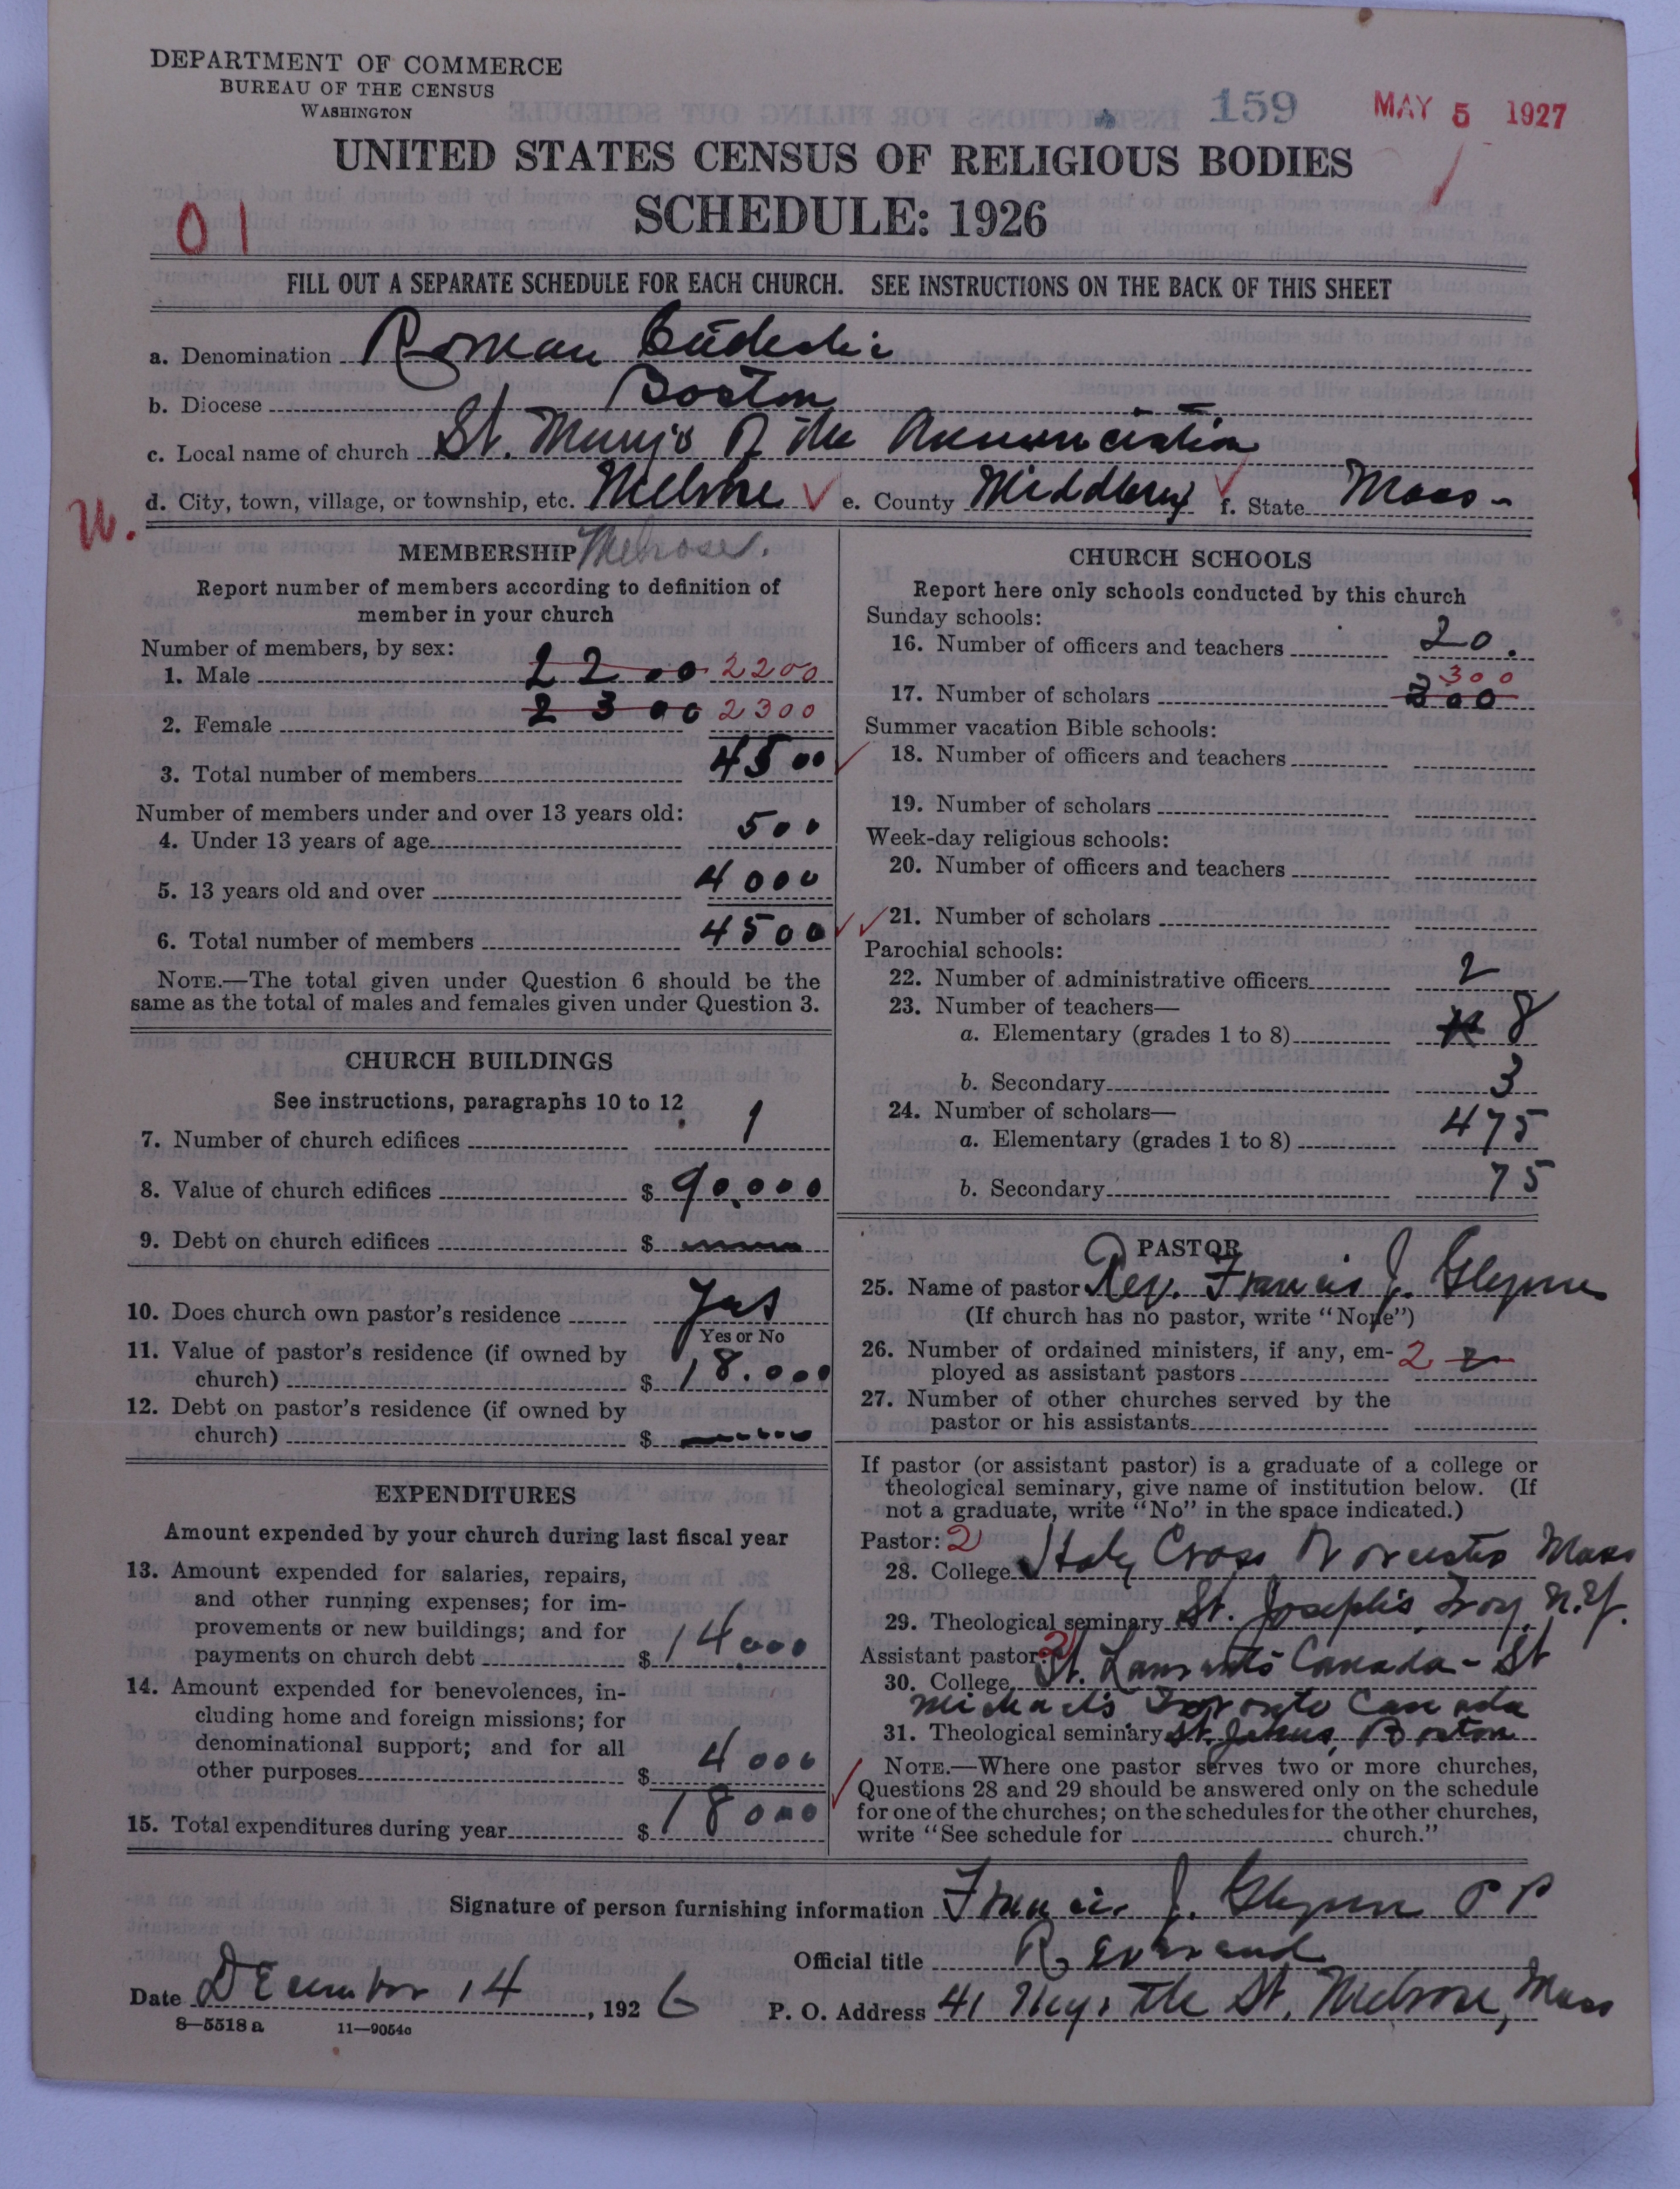 DEPARTMENT OF COMMERCE
BUREAU OF THE CENSUS
WASHINGTON
159
MAY 5 1927
UNITED STATES CENSUS OF RELIGIOUS BODIES
SCHEDULE: 1926
01
FILL OUT A SEPARATE SCHEDULE FOR EACH CHURCH. SEE INSTRUCTIONS ON THE BACK OF THIS SHEET
a. Denomination Roman Catholic
b. Diocese Boston
c. Local name of church St. Mary's Of the Annunciation
d. City, town, village, or township, etc. Melrose e. County Middlesex f. State Mass-
MEMBERSHIP Melrose.
Report number of members according to definition of
member in your church
Number of members, by sex:
1. Male 2200 2200
2. Female 2300 2300
3. Total number of members 4500
Number of members under and over 13 years old:
4. Under 13 years of age 500
5. 13 years old and over 4000
6. Total number of members 4500
NOTE.—The total given under Question 6 should be the
same as the total of males and females given under Question 3.
CHURCH BUILDINGS
See instructions, paragraphs 10 to 12
7. Number of church edifices 1
8. Value of church edifices $ 90.000
9. Debt on church edifices $
10. Does church own pastor's residence Yes
Yes or No
11. Value of pastor's residence (if owned by
church) $ 18.000
12. Debt on pastor's residence (if owned by
church) $
EXPENDITURES
Amount expended by your church during last fiscal year
13. Amount expended for salaries, repairs,
and other running expenses; for im-
provements or new buildings; and for
payments on church debt $ 14.000
14. Amount expended for benevolences, in-
cluding home and foreign missions; for
denominational support; and for all
other purposes $ 4000
15. Total expenditures during year $ 18000
CHURCH SCHOOLS
Report here only schools conducted by this church
Sunday schools:
16. Number of officers and teachers 20.
300
17. Number of scholars 300
Summer vacation Bible schools:
18. Number of officers and teachers
19. Number of scholars
Week-day religious schools:
20. Number of officers and teachers
21. Number of scholars
Parochial schools:
22. Number of administrative officers 2
23. Number of teachers—
a. Elementary (grades 1 to 8) 8
b. Secondary 3
24. Number of scholars—
a. Elementary (grades 1 to 8) 475
b. Secondary 75
PASTOR
25. Name of pastor Rev. Francis J. Glynn
(If church has no pastor, write "None")
26. Number of ordained ministers, if any, em- 2 2
ployed as assistant pastors
27. Number of other churches served by the
pastor or his assistants
If pastor (or assistant pastor) is a graduate of a college or
theological seminary, give name of institution below. (If
not a graduate, write "No" in the space indicated.)
Pastor: 2
28. College Holy Cross Worcester Mass
29. Theological seminary St. Joseph's, Troy, N.Y.
Assistant pastor: 2
30. College St. Canada - St
Michael's Toronto Canada
31. Theological seminary St. Johns, Boston
NOTE.—Where one pastor serves two or more churches,
Questions 28 and 29 should be answered only on the schedule
for one of the churches; on the schedules for the other churches,
write "See schedule for church."
Signature of person furnishing information Francis J. Glynn P P
Official title Reverend
Date December 14, 1926 P. O. Address 41 Myrtle St, Melrose, Mass
8—5518 a 11—9054c